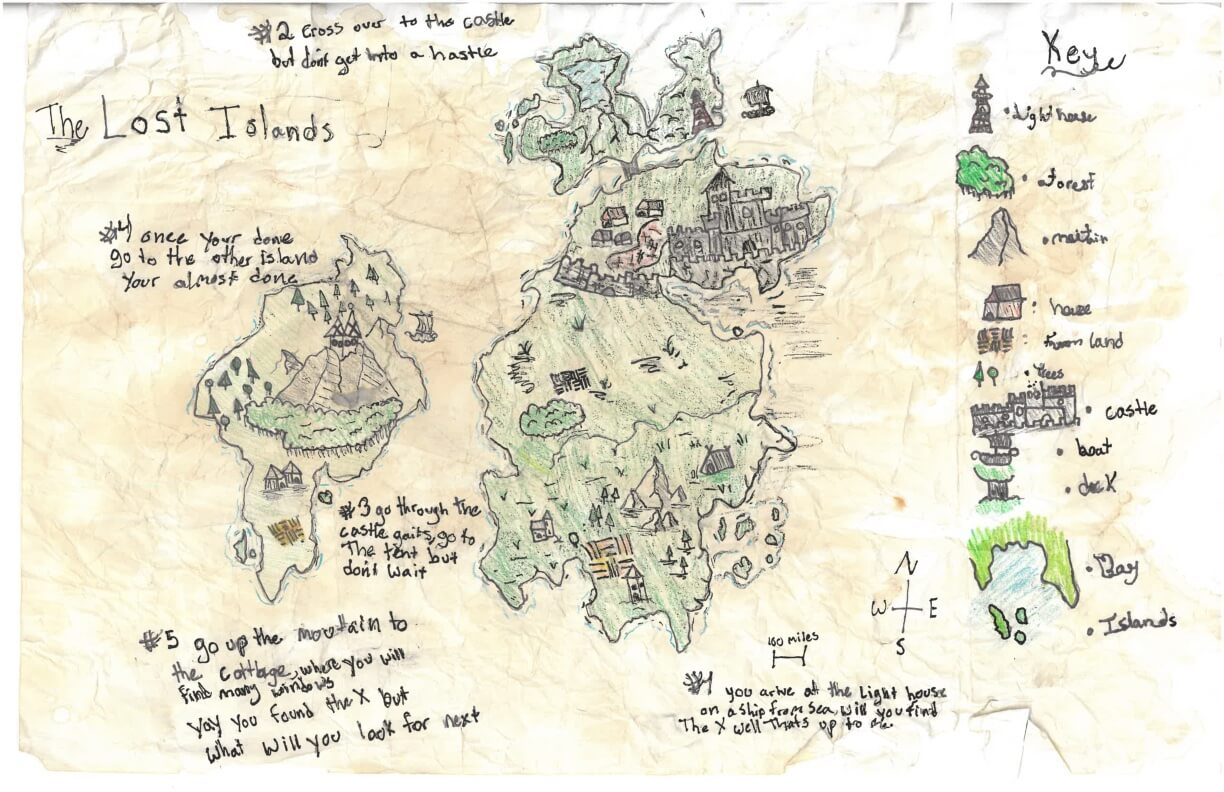 #2 cross over to the castle
but don't get into a hastle
The Lost Islands
Key
Light house
forest
house
land
trees
castle
boat
dock
Bay
Islands
#4 once your done
go to the other island
your almost done
#3 go through the
castle gaits, go to
The tent but
don't wait
N
W E
S
100 miles
#5 go up the mountain to
the cottage, where you will
find many windows
yay you found the X but
what will you look for next
#1 you arive at the Light house
on a ship from sea, will you find
The X well Thats up to me.